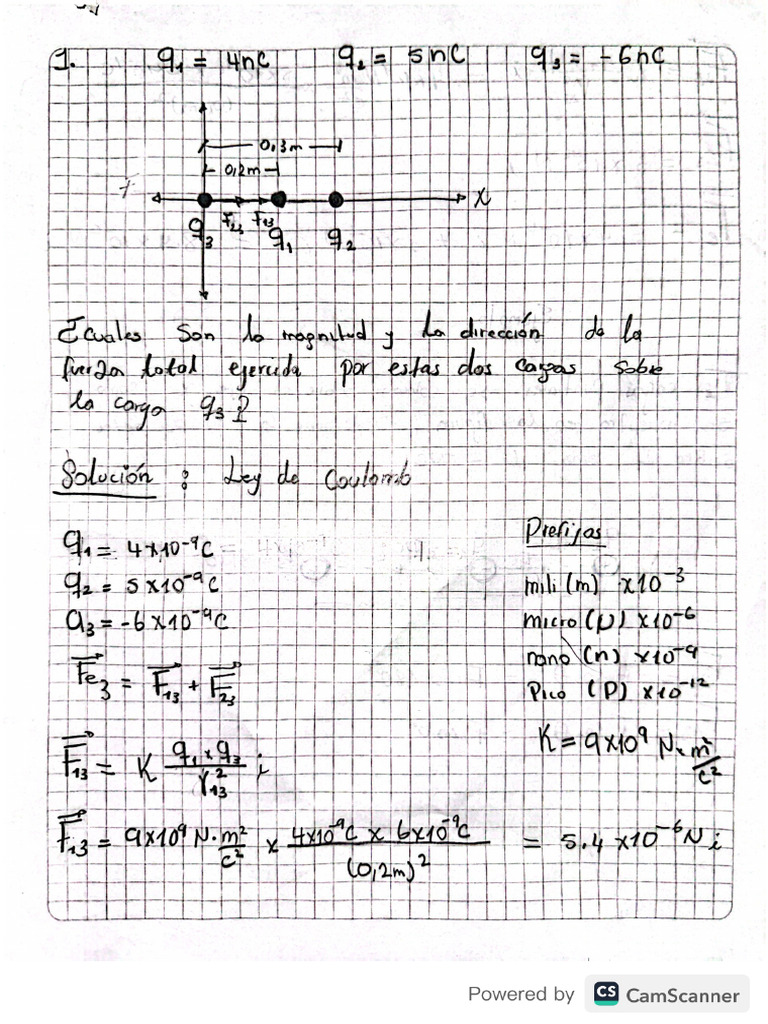 1. q₁ = 4nC q₂ = 5nC q₃ = -6nC
0,3m
0,2m
x
F₂₃ F₁₃
q₃ q₁ q₂
¿cuales son la magnitud y la dirección de la
fuerza total ejercida por estas dos cargas sobre
la carga q₃?
Solución : Ley de Coulomb
q₁ = 4x10⁻⁹C
q₂ = 5x10⁻⁹C
q₃ = -6x10⁻⁹C
Prefijos
mili (m) x10⁻³
micro (μ) x10⁻⁶
nano (n) x10⁻⁹
Pico (P) x10⁻¹²
K = 9x10⁹ N x m²/c²
Fe₃ = F₁₃ + F₂₃
F₁₃ = K q₁ x q₃ / r₁₃² i
F₁₃ = 9x10⁹ N.m²/c² x 4x10⁻⁹C x 6x10⁻⁹C / (0,2m)² = 5.4 x10⁻⁶N i
Powered by CS CamScanner